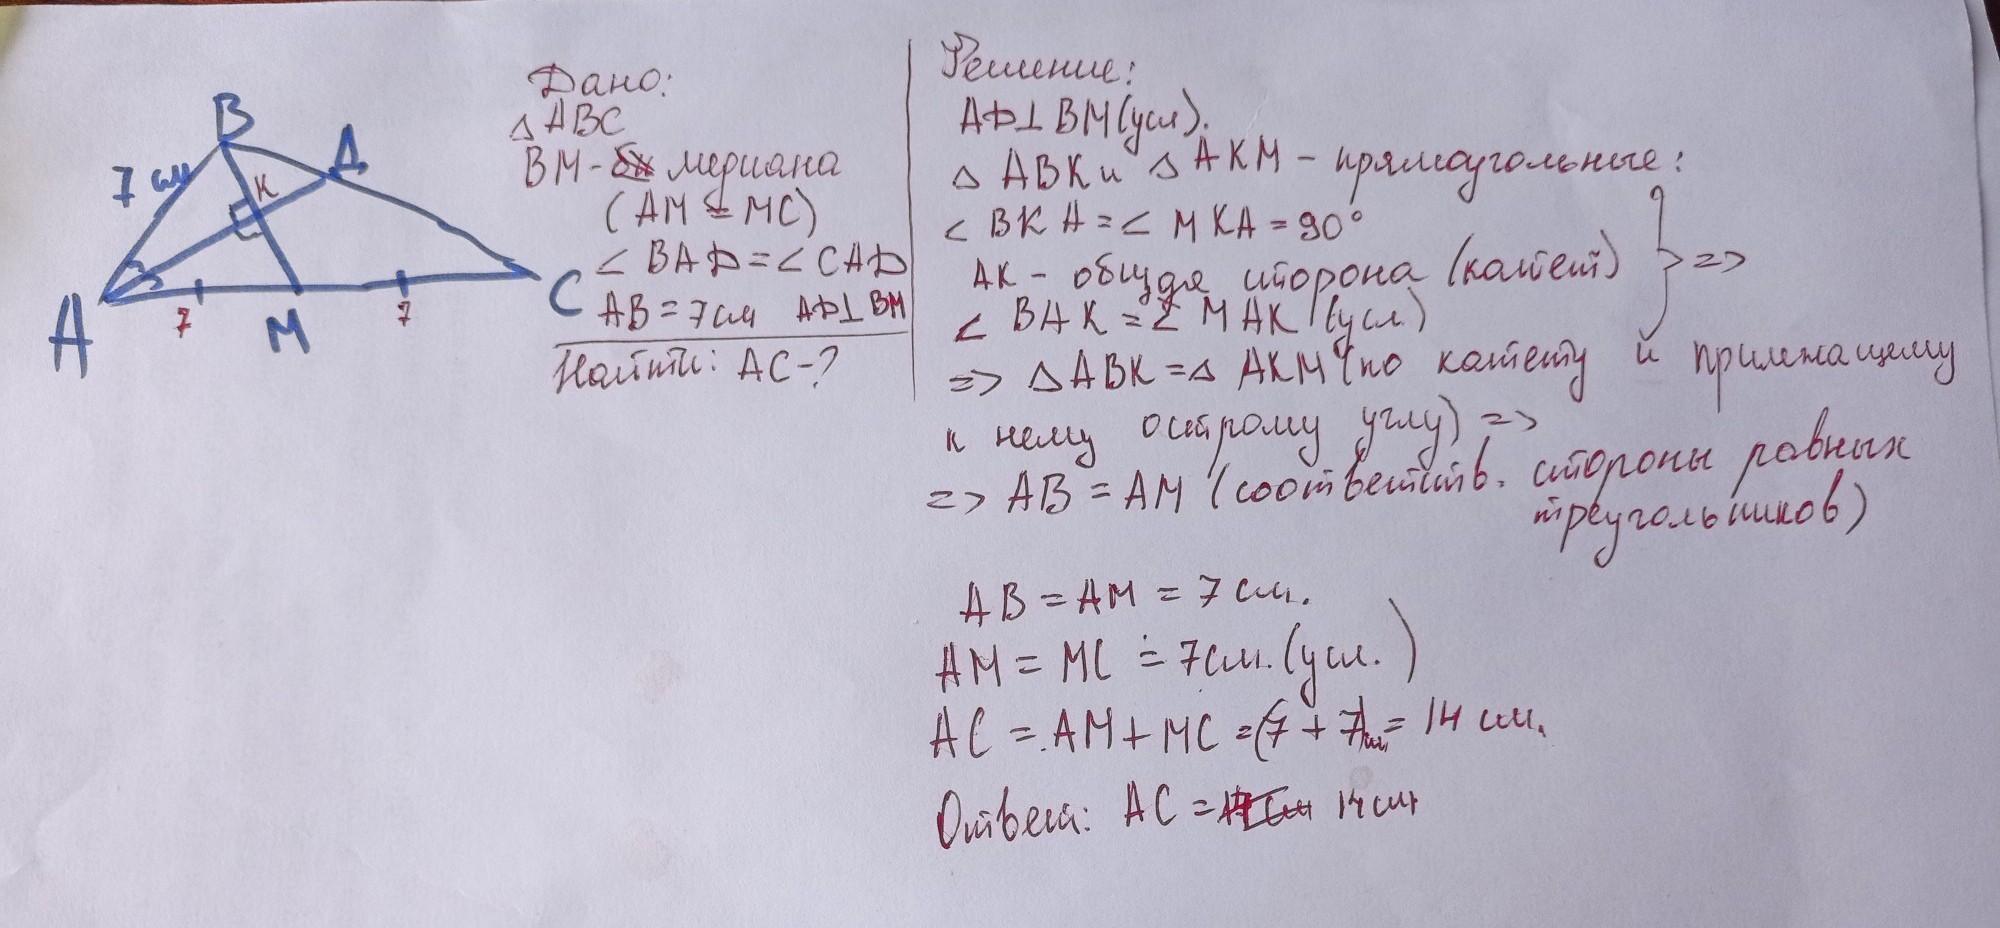 B
Д
7 см
K
A
7
M
7
C
Дано:
△ ABC
BM - медиана
(AM = MC)
∠ BAD = ∠ CAD
AB = 7 см AD⊥BM
Найти: AC-?
Решение:
AD⊥BM (усл).
△ ABK и △ AKM - прямоугольные:
∠ BKA = ∠ MKA = 90°
AK - общая сторона (катет) } =>
∠ BAK = ∠ MAK (усл)
=> △ ABK = △ AKM (по катету и прилежащему
к нему острому углу) =>
=> AB = AM (соответств. стороны равных
треугольников)
AB = AM = 7 см.
AM = MC = 7 см. (усл.)
AC = AM + MC = (7 + 7)см = 14 см.
Ответ: AC = 14 см